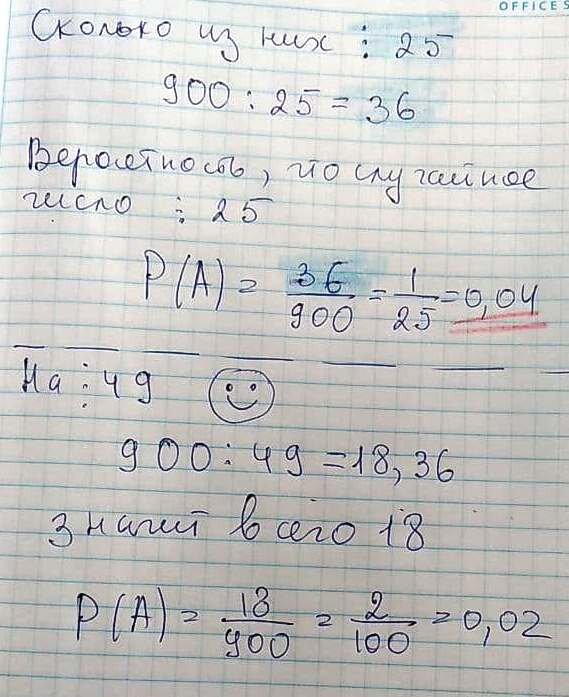 OFFICE S
Сколько из них ⋮ 25
900 : 25 = 36
Вероятность, что случайное
число ⋮ 25
P(A) = 36/900 = 1/25 = 0,04
На ⋮ 49
900 : 49 = 18,36
значит всего 18
P(A) = 18/900 = 2/100 = 0,02